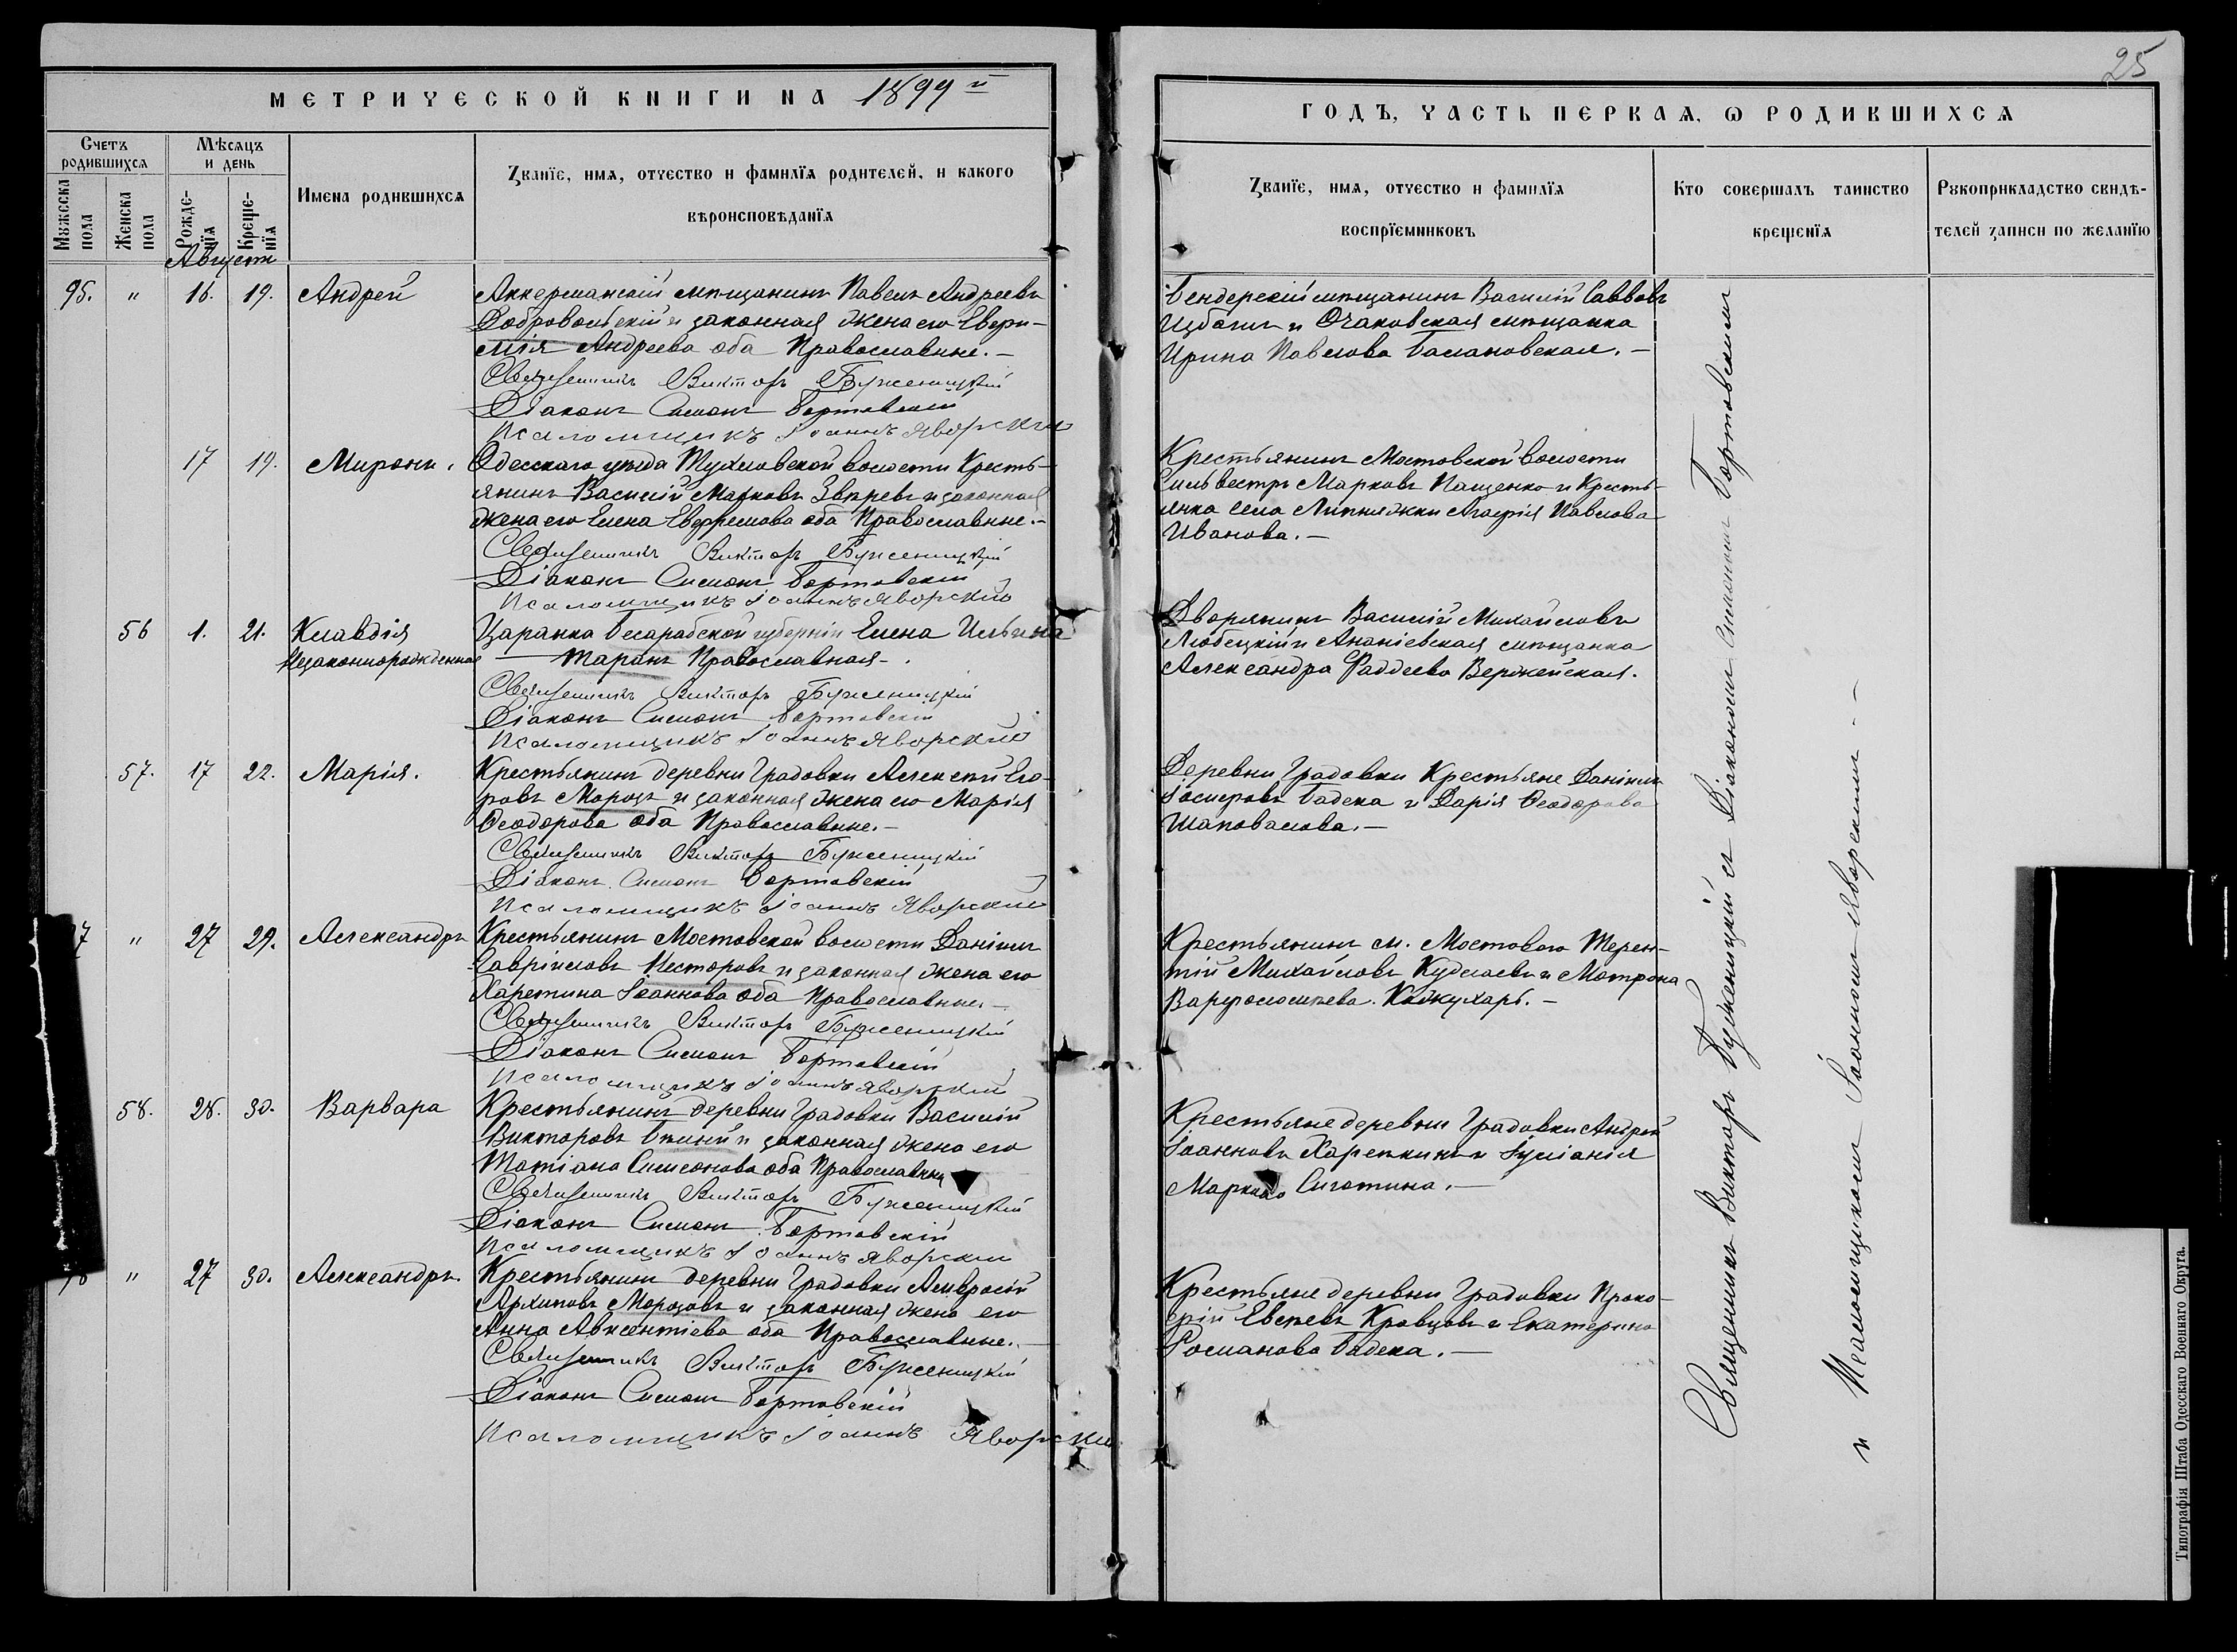 25
МЕТРИЧЕСКОЙ КНИГИ НА 1899 й
ГОДЪ, ЧАСТЬ ПЕРВАЯ, Ѡ РОДИВШИХСЯ
Счетъ родившихся
Мѣсяцъ и день
Мꙋжеска пола
Женска пола
Рожде-нїя
Креще-нїя
Имена родившихся
Званїе, имя, отчество и фамилїя родителей, и какого
вѣроисповѣданїя
Званїе, имя, отчество и фамилїя
воспрїемниковъ
Кто совершалъ таинство
крещенїя
Рꙋкоприкладство свидѣ-
телей записи по желанїю
Августъ
95. " 16. 19. Андрей
Аккерманскій мѣщанинъ Павелъ Андреевъ
Добровольскій и законная жена его Евфи-
мія Андреева оба Православные.-
Священникъ Викторъ Буженицкій
Діаконъ Симеонъ Бортовскій
Псаломщикъ Іоаннъ Яворскій
Бендерскій мѣщанинъ Василій Саввовъ
и Очаковская мѣщанка
Ирина Павлова Балановская.-
17 19. Миронъ.
Одесскаго уѣзда волости Кресть-
янинъ Василій Марковъ Звѣревъ и законная
жена его Елена Евфремова оба Православные.-
Священникъ Викторъ Буженицкій
Діаконъ Симеонъ Бортовскій
Псаломщикъ Іоаннъ Яворскій
Крестьянинъ Мостовской волости
Сильвестръ Марковъ Пащенко и Кресть-
янка села Липняжки Агафія Павлова
Иванова.-
56 1. 21. Клавдія
Незаконнорожденная
Царанка Бесарабской губерніи Елена Ильина
Таранъ Православная-.
Священникъ Викторъ Буженицкій
Діаконъ Симеонъ Бортовскій
Псаломщикъ Іоаннъ Яворскій
Дворянинъ Василій Михайловъ
Любецкій и Ананіевская мѣщанка
Александра Фаддеева Вержейская.
57. 17 22. Марія.
Крестьянинъ деревни Градовки Алексѣй Его-
ровъ Морозъ и законная жена его Марія
Ѳеодорова оба Православные.-
Священникъ Викторъ Буженицкій
Діаконъ Симеонъ Бортовскій
Псаломщикъ Іоаннъ Яворскій
Деревни Градовки Крестьяне Даніилъ
Іосифовъ Бадека и Дарія Ѳеодорова
Шаповалова.-
7 " 27 29. Александръ
Крестьянинъ Мостовской волости Даніилъ
Гавріиловъ Несторовъ и законная жена его
Харетина Іоаннова оба Православные.-
Священникъ Викторъ Буженицкій
Діаконъ Симеонъ Бортовскій
Псаломщикъ Іоаннъ Яворскій
Крестьянинъ м. Мостового Терен-
тій Михайловъ и Мотрона
Варфоломѣева Кожухарь.-
58. 28. 30. Варвара
Крестьянинъ деревни Градовки Василій
Викторовъ Бѣлый и законная жена его
Татіана Симеонова оба Православные
Священникъ Викторъ Буженицкій
Діаконъ Симеонъ Бортовскій
Псаломщикъ Іоаннъ Яворскій
Крестьяне деревни Градовки Андрей
Іоанновъ и Іуліанія
Маркова Сиротина.-
" 27 30. Александръ.
Крестьянинъ деревни Градовки Амвросій
Архиповъ Морозовъ и законная жена его
Анна Авксентіева оба Православные.-
Священникъ Викторъ Буженицкій
Діаконъ Симеонъ Бортовскій
Псаломщикъ Іоаннъ Яворскій
Крестьяне деревни Градовки Проко-
фій Евсѣевъ Кравцовъ и Екатерина
Романова Бадека.-
Священникъ Викторъ Буженицкій съ Діакономъ Симеономъ Бортовскимъ
и Псаломщикомъ Іоанномъ Яворскимъ.-
Типографія Штаба Одесскаго Военнаго Округа.